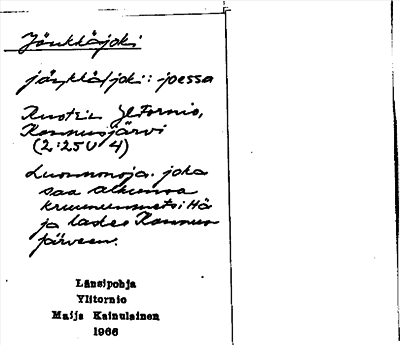 Jänkkäjoki
jäŋkkä/joki: -joessa
Ruotsi Ylitornio,
Kannusjärvi
(2:25U 4)
Luonnonoja. joka
saa alkunsa
kruununmetsistä
ja laskee Kannus
järveen.
Länsipohja
Ylitornio
Maija Kainulainen
1966